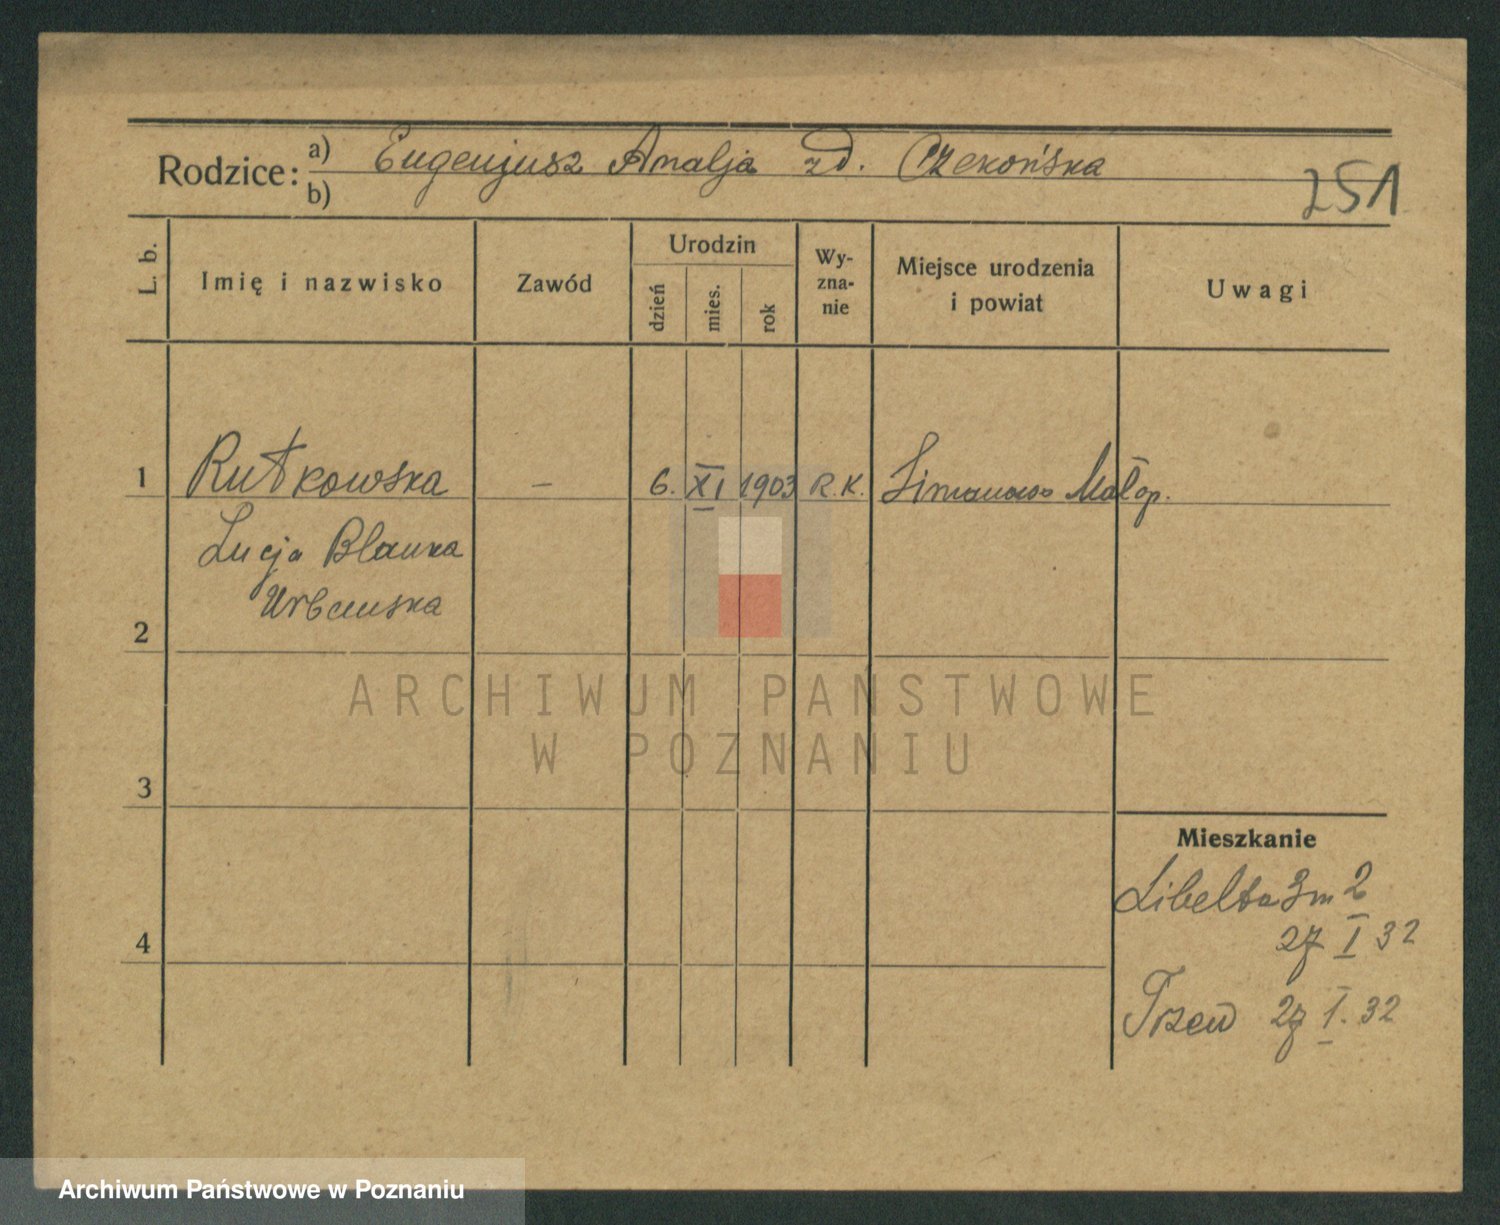 Rodzice: a) Eugenjusz Amalja zd. Czekońska
b)
251
L. b.
Imię i nazwisko
Zawód
Urodzin
dzień
mies.
rok
Wy-
zna-
nie
Miejsce urodzenia
i powiat
Uwagi
1 Rutkowska — 6. XI 1903 R. K. Małop.
Lucja Blanka
Urbańska
2
ARCHIWUM PAŃSTWOWE
W POZNANIU
3
Mieszkanie
Libelta 3 m 2
27 I 32
4
27 I. 32
Archiwum Państwowe w Poznaniu